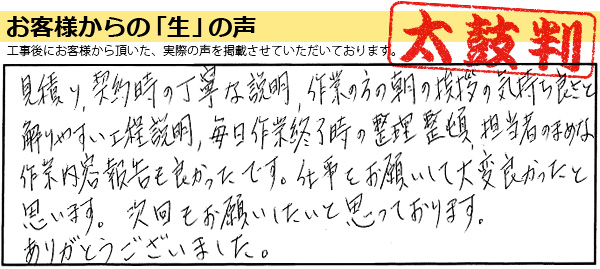 お客様からの「生」の声
工事後にお客様から頂いた、実際の声を掲載させていただいております。
太鼓判
見積り,契約時の丁寧な説明,作業の方の朝の挨拶の気持ち良さと
解りやすい工程説明,毎日作業終了時の整理整頓,担当者のまめな
作業内容報告も良かったです。仕事をお願いして大変良かったと
思います。次回もお願いしたいと思っております。
ありがとうございました。